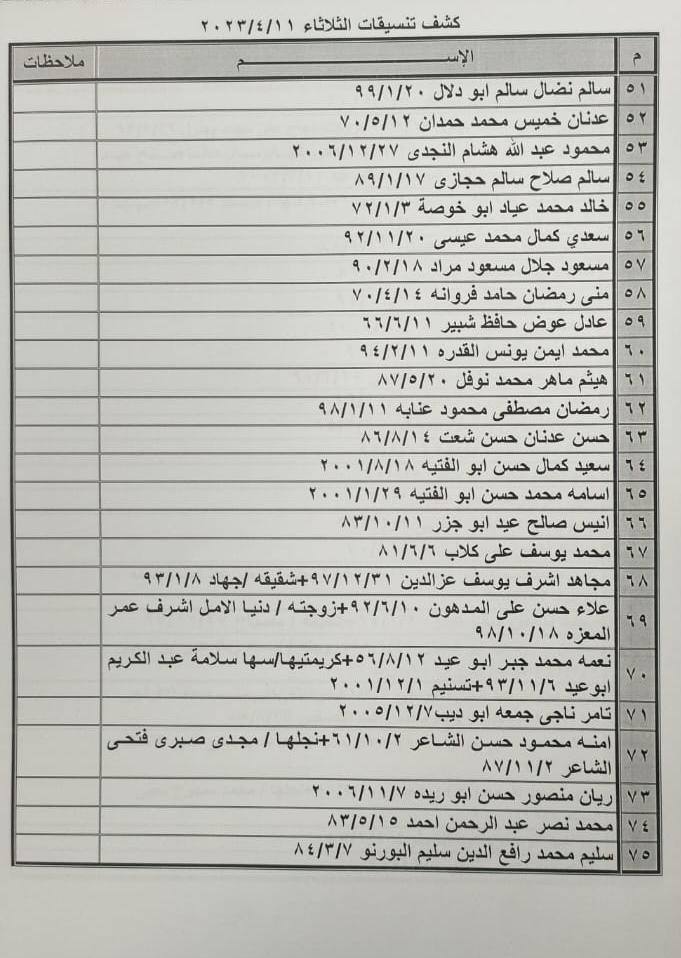 كشف تنسيقات الثلاثاء ٢٠٢٣/٤/١١
م الإســـــم ملاحظات
٥١ سالم نضال سالم ابو دلال ٩٩/١/٢٠
٥٢ عدنان خميس محمد حمدان ٧٠/٥/١٢
٥٣ محمود عبد الله هشام النجدى ٢٠٠٦/١٢/٢٧
٥٤ سالم صلاح سالم حجازى ٨٩/١/١٧
٥٥ خالد محمد عياد ابو خوصة ٧٢/١/٣
٥٦ سعدي كمال محمد عيسى ٩٢/١١/٢٠
٥٧ مسعود جلال مسعود مراد ٩٠/٢/١٨
٥٨ منى رمضان حامد فروانه ٧٠/٤/١٤
٥٩ عادل عوض حافظ شبير ٦٦/٦/١١
٦٠ محمد ايمن يونس القدره ٩٤/٢/١١
٦١ هيثم ماهر محمد نوفل ٨٧/٥/٢٠
٦٢ رمضان مصطفى محمود عنابه ٩٨/١/١١
٦٣ حسن عدنان حسن شعت ٨٦/٨/١٤
٦٤ سعيد كمال حسن ابو الفتيه ٢٠٠١/٨/١٨
٦٥ اسامه محمد حسن ابو الفتيه ٢٠٠١/١/٢٩
٦٦ انيس صالح عيد ابو جزر ٨٣/١٠/١١
٦٧ محمد يوسف على كلاب ٨١/٦/٦
٦٨ مجاهد اشرف يوسف عزالدين ٩٧/١٢/٣١+شقيقه /جهاد ٩٣/١/٨
٦٩ علاء حسن على المدهون ٩٢/٦/١٠+زوجته / دنيا الامل اشرف عمر
المعزه ٩٨/١٠/١٨
٧٠ نعمه محمد جبر ابو عيد ٥٦/٨/١٢+كريمتيها/سها سلامة عبد الكريم
ابوعيد ٩٣/١١/٦+تسنيم ٢٠٠١/١٢/١
٧١ تامر ناجى جمعه ابو ديب٢٠٠٥/١٢/٧
٧٢ امنه محمود حسن الشاعر ٦١/١٠/٢+نجلها / مجدى صبرى فتحى
الشاعر ٨٧/١١/٢
٧٣ ريان منصور حسن ابو ريده ٢٠٠٦/١١/٧
٧٤ محمد نصر عبد الرحمن احمد ٨٣/٥/١٥
٧٥ سليم محمد رافع الدين سليم البورنو ٨٤/٣/٧